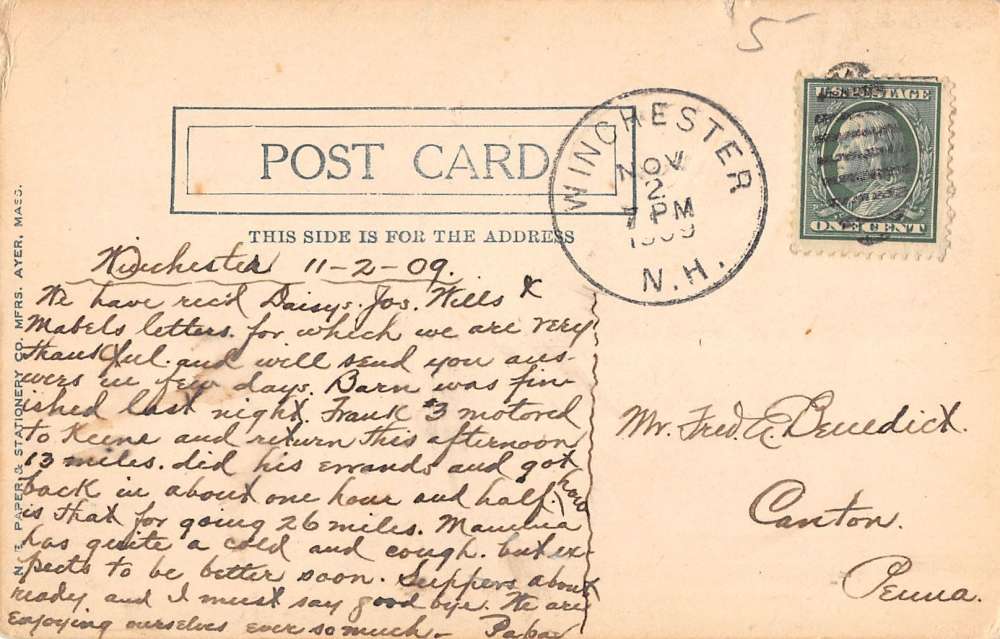 5
U.S. POSTAGE
ONE CENT
WINCHESTER
NOV
2
7 PM
1909
N.H.
POST CARD
THIS SIDE IS FOR THE ADDRESS
N.E. PAPER & STATIONERY CO. MFRS. AYER, MASS.
Winchester 11-2-09.
We have rec'd Daisys. Jos. Wills &
Mabels letters. for which we are very
thankful. and will send you ans-
wers in few days. Barn was fin-
ished last night. Frank #3 motored
to Keene and return this afternoon
13 miles. did his errands and got
back in about one hour and half. how
is that for going 26 miles. Mamma
has quite a cold and cough. but ex-
pects to be better soon. Suppers about
ready and I must say good bye. We are
enjoying ourselves ever so much - Papa
Mr. Fred. A. Benedict.
Canton.
Penna.